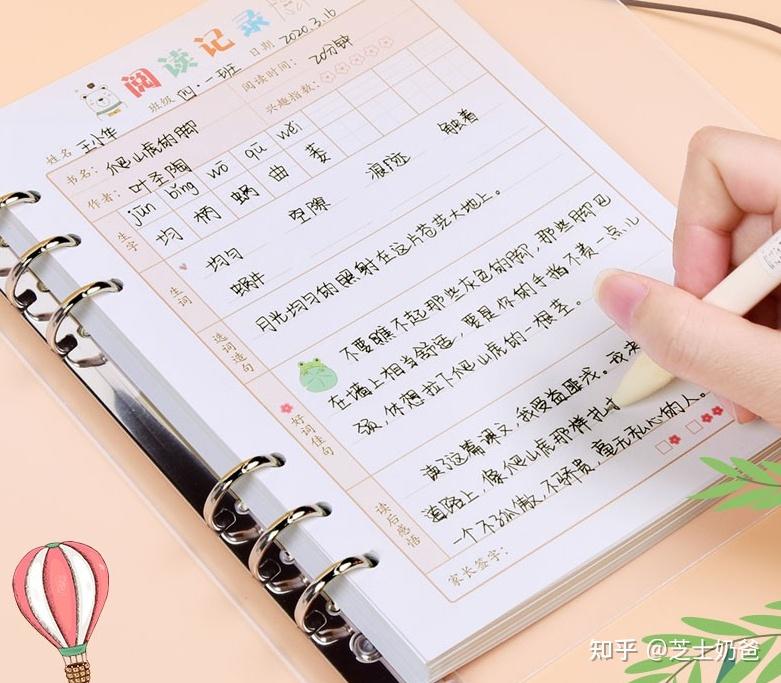 阅读记录
日期 2020.3.16
班级 四·一班
姓名 王小华
阅读时间： 20分钟
兴趣指数：
书名： 爬山虎的脚
作者： 叶圣陶
jūn bǐng wō qū wěi
生字 均 柄 蜗 曲 萎
生词 均匀 空隙 痕迹 触着
蜗牛
选词造句 月光均匀的照射在这片苍茫大地上。
好词佳句 不要瞧不起那些灰色的脚，那些脚巴
在墙上相当舒适，要是你的手指不费一点儿
劲，休想拉下爬山虎的一根茎。
读后感悟 读了这篇课文，我受益匪浅。我
道路上，像爬山虎那样
一个不孤傲，不骄贵，毫无私心的人。
家长签字：
知乎 @芝士奶爸